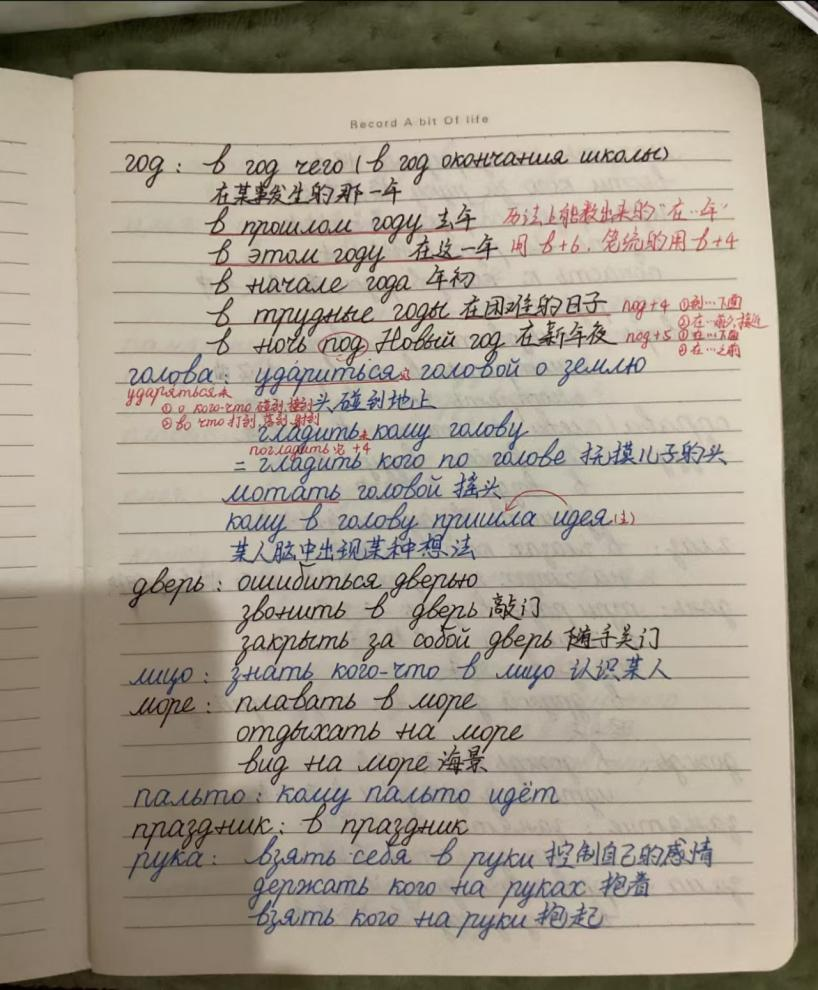 Record A bit Of life
год: в год чего (в год окончания школы)
在某事发生的那一年
в прошлом году 去年 历法上能数出来的"在…年"
в этом году 在这一年 用 в+6, 笼统的用 в+4
в начале года 年初
в трудные годы 在困难的日子 под+4 ①到…下面
②在…前夕,接近
в ночь под Новый год 在新年夜 под+5 ①在…下面
②在…之前
голова: удариться головой о землю
ударяться
① о кого-что 碰到,撞到 头碰到地上
② во что 打到 落到 射到
гладить кому голову
погладить +4
= гладить кого по голове 抚摸儿子的头
мотать головой 摇头
кому в голову пришла идея (主)
某人脑中出现某种想法
дверь: ошибиться дверью
звонить в дверь 敲门
закрыть за собой дверь 随手关门
лицо: знать кого-что в лицо 认识某人
море: плавать в море
отдыхать на море
вид на море 海景
пальто: кому пальто идёт
праздник: в праздник
рука: взять себя в руки 控制自己的感情
держать кого на руках 抱着
взять кого на руки 抱起